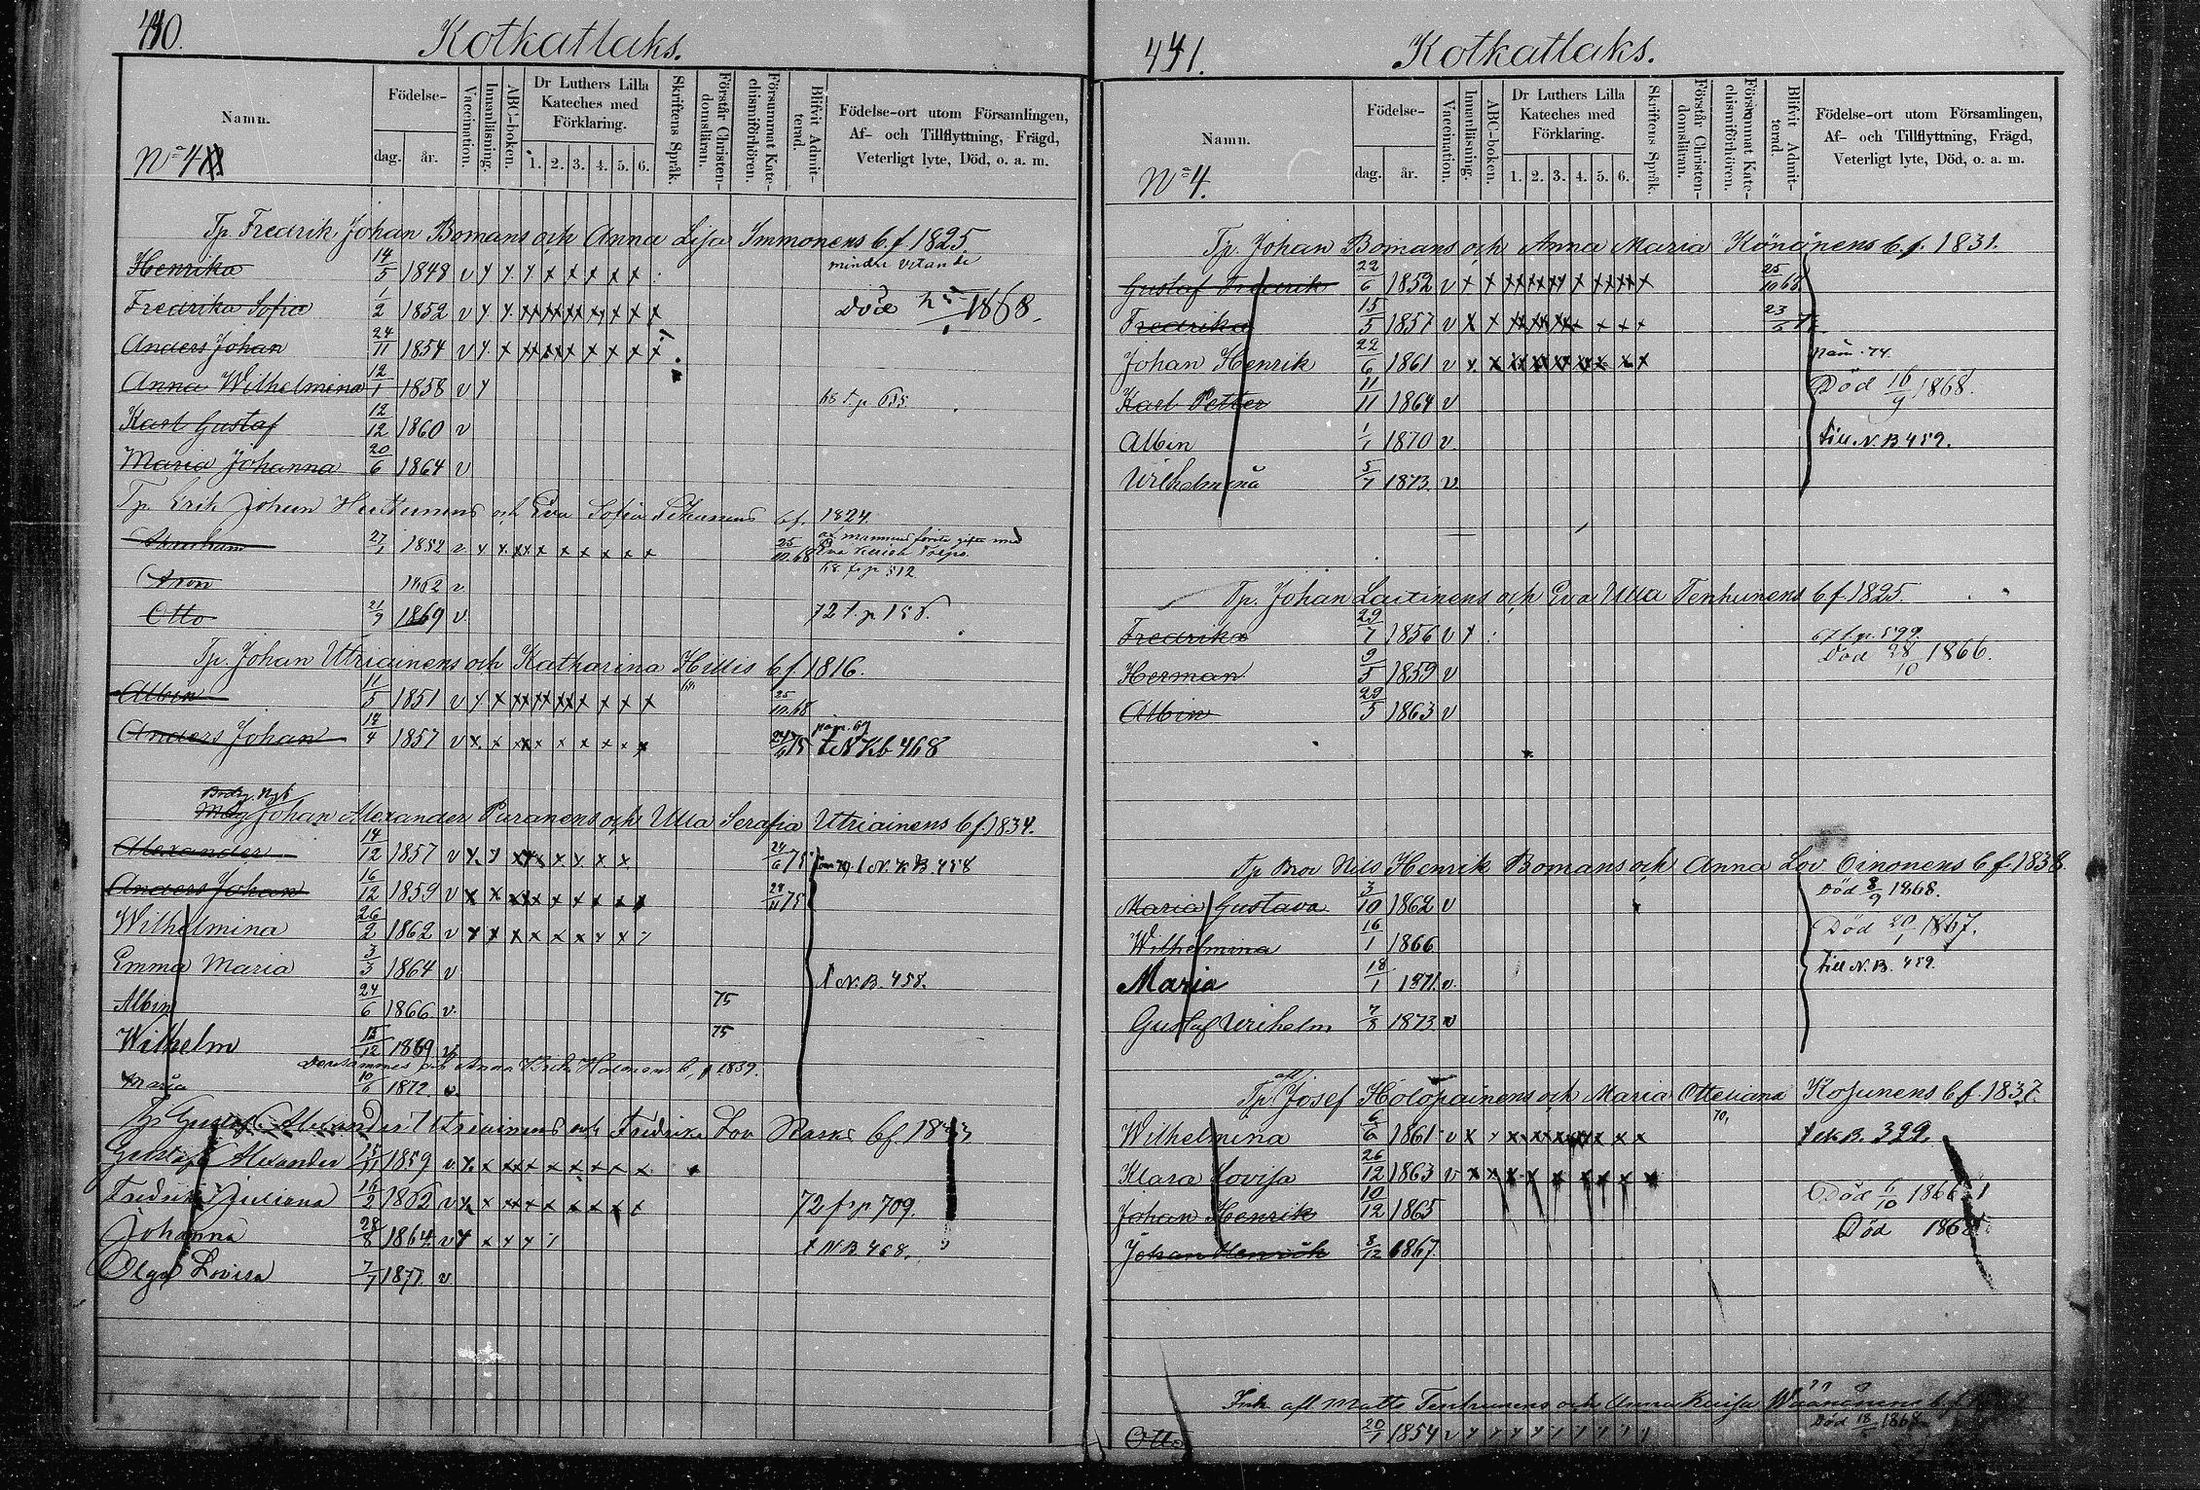 440.
Kotkatlaks.
Namn.
Födelse-
dag.
år.
Vaccination.
Innanläsning.
ABC-boken.
Dr Luthers Lilla
Kateches med
Förklaring.
1. 2. 3. 4. 5. 6.
Skriftens Språk.
Förstår Christen-
domsläran.
Försummat Kate-
chismiförhören.
Blifvit Admit-
terad.
Födelse-ort utom Församlingen,
Af- och Tillflyttning, Frägd,
Veterligt lyte, Död, o. a. m.
No 4
Tp. Fredrik Johan Bomans och Anna Lisa Immonens b.f. 1825.
Henrika 14/5 1848 v mindre vetande
Fredrika Sofia 1/2 1852 v Död 1868.
Anders Johan 24/11 1854 v
Anna Wilhelmina 12/1 1858 v 68 t.p 655
Karl Gustaf 12/12 1860 v
Maria Johanna 20/6 1864 v
Tp. Erik Johan och Eva Sofia b.f. 1824.
Abraham 27/1 1852 v 25/10.68
68 f.p 512
Aron 1862 v
Otto 21/9 1869 v 72 t.p 156.
Tp. Johan Utriainens och Katharina Hillis b.f 1816.
Albin 11/5 1851 v 25/10.68
Anders Johan 14/4 1857 v 24/6 75 t N Kb 468
Johan Alexander Puranens och Ulla Serafia Utriainens b.f. 1834.
Alexander 14/12 1857 v 24/6 75 t N. K.B. 458
Anders Johan 16/12 1859 v 28/11 75
Wilhelmina 26/2 1862 v
Emma Maria 3/3 1864 v t N.B. 458.
Albin 24/6 1866 v. 75
Wilhelm 15/12 1869 v 75
Densammes och Anna b.f 1839.
Maria 10/6 1872. v.
Tp Gustaf Alexander Utriainens och Fredrika Lov b.f. 18
Gustaf Alexander 15/11 1859 v
Fredrika Juliana 16/2 1862 v 72 f.p 709.
Johanna 28/8 1864 v t N.B 468.
Olga Lovisa 7/7 1871. v
441.
Kotkatlaks.
Namn.
Födelse-
dag.
år.
Vaccination.
Innanläsning.
ABC-boken.
Dr Luthers Lilla
Kateches med
Förklaring.
1. 2. 3. 4. 5. 6.
Skriftens Språk.
Förstår Christen-
domsläran.
Försummat Kate-
chismiförhören.
Blifvit Admit-
terad.
Födelse-ort utom Församlingen,
Af- och Tillflyttning, Frägd,
Veterligt lyte, Död, o. a. m.
No 4.
Tp. Johan Bomans och Anna Maria Könönens b.f. 1831.
Gustaf Fredrik 22/6 1852 v 25/10 68
Fredrika 15/5 1857 v
Johan Henrik 22/6 1861 v
Karl Petter 11/11 1864 v Död 16/9 1868.
Albin 1/1 1870 v. till N.B 459.
Wilhelmina 5/7 1873. v.
Tp. Johan Laitinens och Eva Ulla Tenhunens b.f 1825.
Fredrika 29/7 1856 v 67 t.p. 599.
Herman 9/5 1859 v Död 28/10 1866.
Albin 29/5 1863 v
Tp Bror Nils Henrik Bomans och Anna Lov Oinonens b.f 1838.
Maria Gustava 3/10 1862 v Död 8/9 1868.
Wilhelmina 16/1 1866 Död 20/1 1867.
Maria 18/1 1871 v. till N.B. 459.
Gustaf Wilhelm 7/8 1873 v
Tp Josef Holopainens och Maria Otteliana Kosunens b.f 1837.
70,
Wilhelmina 6/6 1861 v t ck B. 399.
Klara Lovisa 26/12 1863 v
Johan Henrik 10/12 1865 Död 6/10 1866
Johan Henrik 8/12 1867 Död 1868
Inh. afl Matts Tenhunens och Anna Kaisa Väänänens b.f
Otto 20/1 1854 v Död 18/ 1868